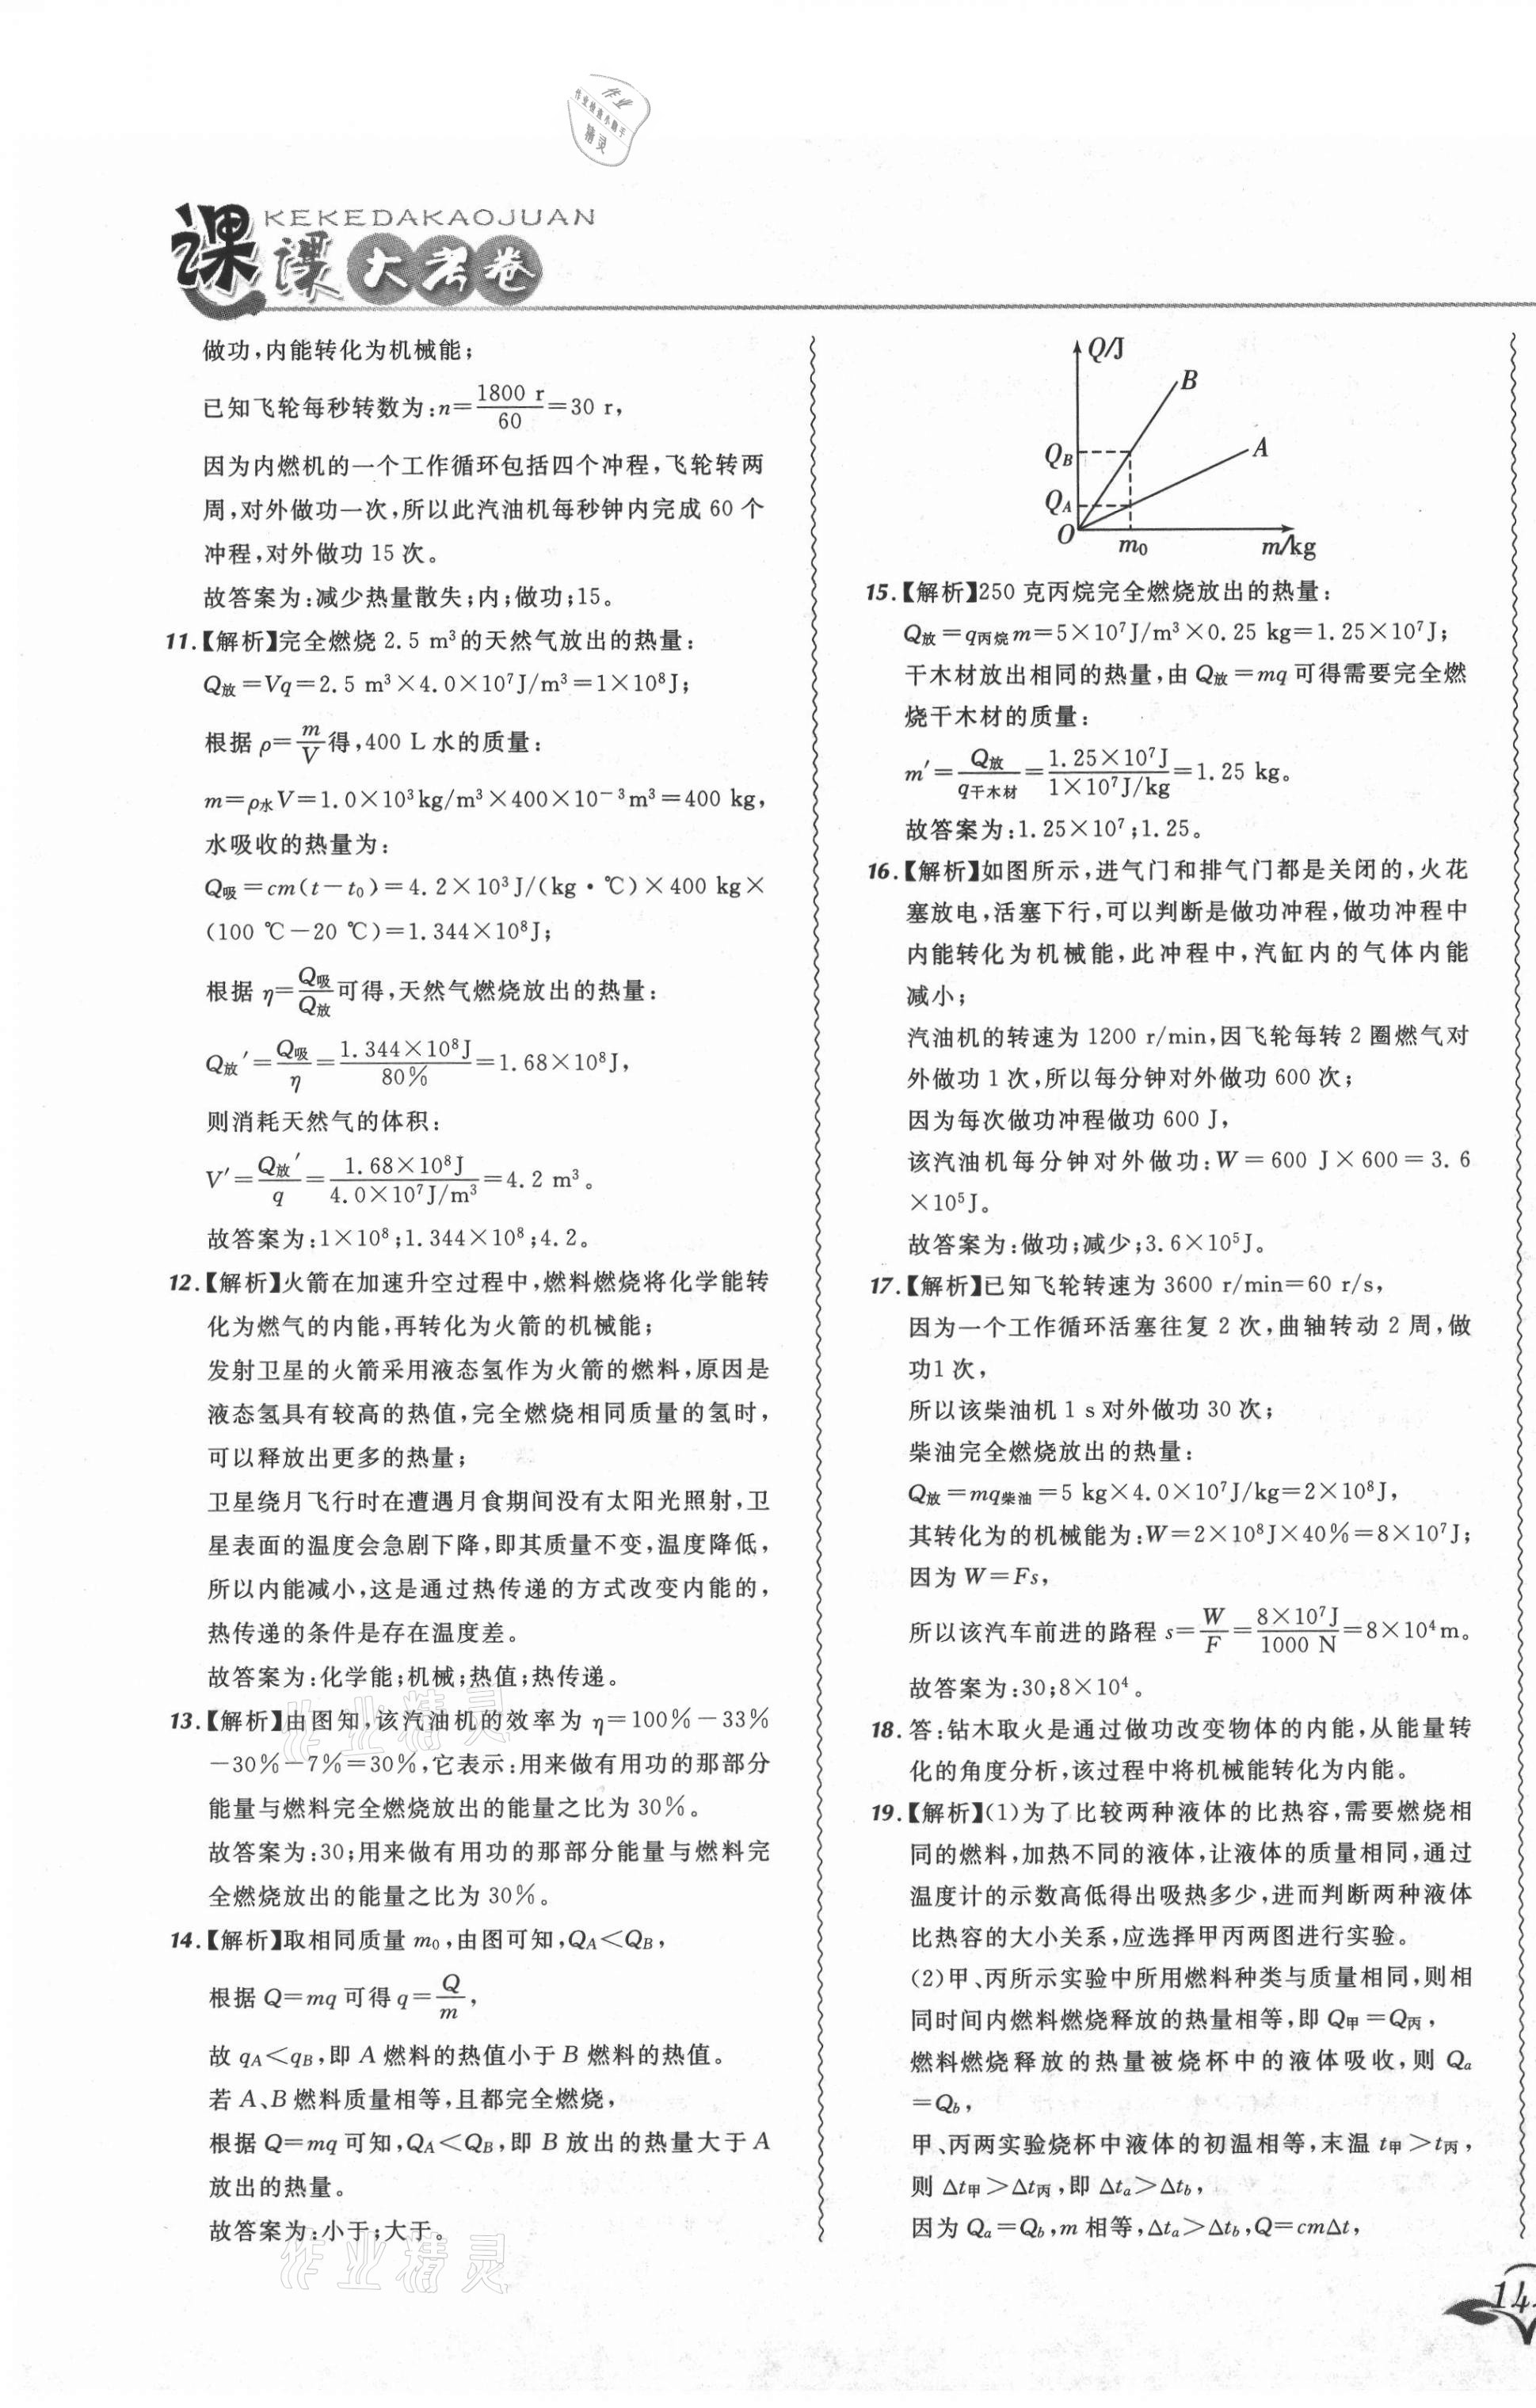 作业
作业检查小助手
精灵
KEKEDAKAOJUAN
课课大考卷
做功,内能转化为机械能;
已知飞轮每秒转数为:n=1800 r/60=30 r,
因为内燃机的一个工作循环包括四个冲程,飞轮转两
周,对外做功一次,所以此汽油机每秒钟内完成 60 个
冲程,对外做功 15 次。
故答案为:减少热量散失;内;做功;15。
11.【解析】完全燃烧 2.5 m³的天然气放出的热量:
Q放=Vq=2.5 m³×4.0×10⁷J/m³=1×10⁸J;
根据 ρ=m/V得,400 L 水的质量:
m=ρ水V=1.0×10³kg/m³×400×10⁻³m³=400 kg,
水吸收的热量为:
Q吸=cm(t-t₀)=4.2×10³J/(kg·℃)×400 kg×
(100 ℃-20 ℃)=1.344×10⁸J;
根据 η=Q吸/Q放可得,天然气燃烧放出的热量:
Q放′=Q吸/η=1.344×10⁸J/80%=1.68×10⁸J,
则消耗天然气的体积:
V′=Q放′/q=1.68×10⁸J/4.0×10⁷J/m³=4.2 m³。
故答案为:1×10⁸;1.344×10⁸;4.2。
12.【解析】火箭在加速升空过程中,燃料燃烧将化学能转
化为燃气的内能,再转化为火箭的机械能;
发射卫星的火箭采用液态氢作为火箭的燃料,原因是
液态氢具有较高的热值,完全燃烧相同质量的氢时,
可以释放出更多的热量;
卫星绕月飞行时在遭遇月食期间没有太阳光照射,卫
星表面的温度会急剧下降,即其质量不变,温度降低,
所以内能减小,这是通过热传递的方式改变内能的,
热传递的条件是存在温度差。
故答案为:化学能;机械;热值;热传递。
13.【解析】由图知,该汽油机的效率为 η=100%-33%
-30%-7%=30%,它表示:用来做有用功的那部分
能量与燃料完全燃烧放出的能量之比为 30%。
故答案为:30;用来做有用功的那部分能量与燃料完
全燃烧放出的能量之比为 30%。
14.【解析】取相同质量 m₀,由图可知,QA<QB,
根据 Q=mq 可得 q=Q/m,
故 qA<qB,即 A 燃料的热值小于 B 燃料的热值。
若 A、B 燃料质量相等,且都完全燃烧,
根据 Q=mq 可知,QA<QB,即 B 放出的热量大于 A
放出的热量。
故答案为:小于;大于。
作业精灵
作业精灵
Q/J
B
A
QB
QA
O
m₀
m/kg
15.【解析】250 克丙烷完全燃烧放出的热量:
Q放=q丙烷m=5×10⁷J/m³×0.25 kg=1.25×10⁷J;
干木材放出相同的热量,由 Q放=mq 可得需要完全燃
烧干木材的质量:
m′=Q放/q干木材=1.25×10⁷J/1×10⁷J/kg=1.25 kg。
故答案为:1.25×10⁷;1.25。
16.【解析】如图所示,进气门和排气门都是关闭的,火花
塞放电,活塞下行,可以判断是做功冲程,做功冲程中
内能转化为机械能,此冲程中,汽缸内的气体内能
减小;
汽油机的转速为 1200 r/min,因飞轮每转 2 圈燃气对
外做功 1 次,所以每分钟对外做功 600 次;
因为每次做功冲程做功 600 J,
该汽油机每分钟对外做功:W=600 J×600=3.6
×10⁵J。
故答案为:做功;减少;3.6×10⁵J。
17.【解析】已知飞轮转速为 3600 r/min=60 r/s,
因为一个工作循环活塞往复 2 次,曲轴转动 2 周,做
功1 次,
所以该柴油机 1 s 对外做功 30 次;
柴油完全燃烧放出的热量:
Q放=mq柴油=5 kg×4.0×10⁷J/kg=2×10⁸J,
其转化为的机械能为:W=2×10⁸J×40%=8×10⁷J;
因为 W=Fs,
所以该汽车前进的路程 s=W/F=8×10⁷J/1000 N=8×10⁴m。
故答案为:30;8×10⁴。
18. 答:钻木取火是通过做功改变物体的内能,从能量转
化的角度分析,该过程中将机械能转化为内能。
19.【解析】(1)为了比较两种液体的比热容,需要燃烧相
同的燃料,加热不同的液体,让液体的质量相同,通过
温度计的示数高低得出吸热多少,进而判断两种液体
比热容的大小关系,应选择甲丙两图进行实验。
(2)甲、丙所示实验中所用燃料种类与质量相同,则相
同时间内燃料燃烧释放的热量相等,即 Q甲=Q丙,
燃料燃烧释放的热量被烧杯中的液体吸收,则 Qa
=Qb,
甲、丙两实验烧杯中液体的初温相等,末温 t甲>t丙,
则 Δt甲>Δt丙,即 Δta>Δtb,
因为 Qa=Qb,m 相等,Δta>Δtb,Q=cmΔt,